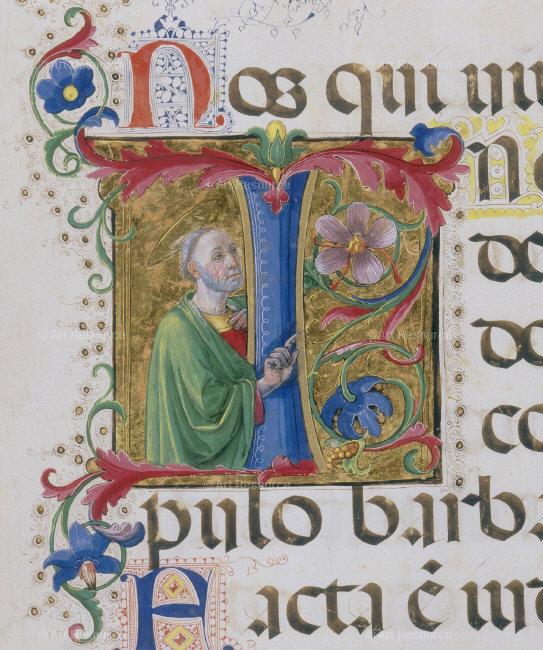 Nos qui
IN
de
do
co
pulo barba
Facta ē iu
© Art Resource